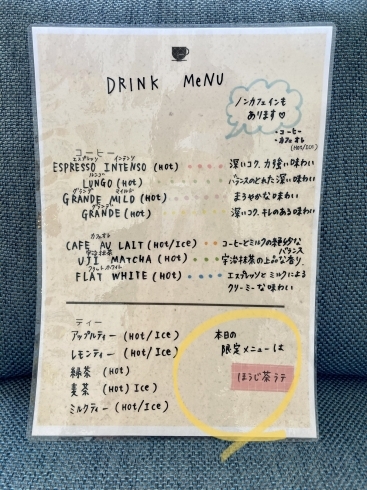 DRINK MENU
ノンカフェインも
あります♡
・コーヒー
・カフェオレ
(HOT/ICE)
コーヒー
エスプレッソ インテンソ
ESPRESSO INTENSO (HOT) 深いコク、力強い味わい
ルンゴ
LUNGO (HOT) バランスのとれた深い味わい
グランデ マイルド
GRANDE MILD (HOT) まろやかな味わい
グランデ
GRANDE (HOT) 深いコク、キレのある味わい
カフェオレ
CAFE AU LAIT (HOT/ICE) コーヒーとミルクの絶妙な
バランス
宇治抹茶
UJI MATCHA (HOT) 宇治抹茶の上品な香り
フラットホワイト
FLAT WHITE (HOT) エスプレッソとミルクによる
クリーミーな味わい
ティー
アップルティー (HOT/ICE)
レモンティー (HOT/ICE)
緑茶 (HOT)
麦茶 (HOT) ICE)
ミルクティー (HOT/ICE)
本日の
限定メニューは
ほうじ茶ラテ